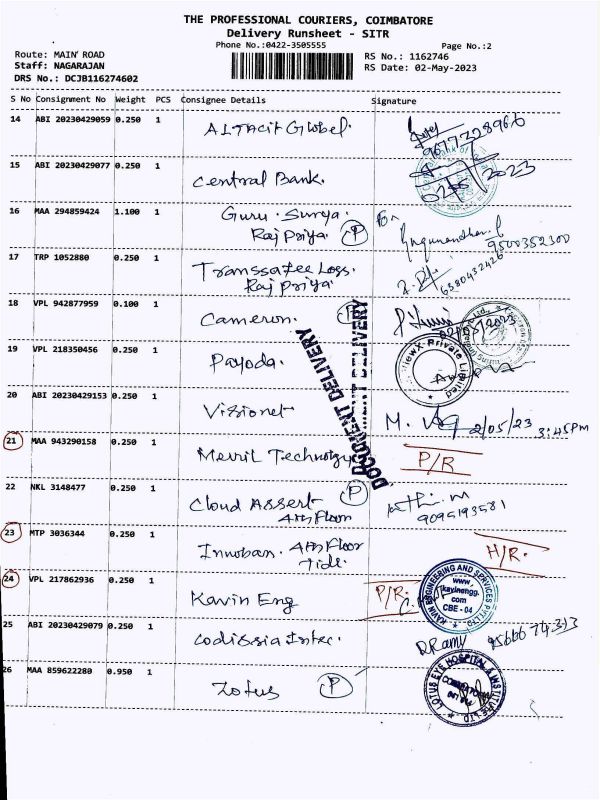 THE PROFESSIONAL COURIERS, COIMBATORE
Delivery Runsheet - SITR
Phone No.:0422-3505555
Page No.:2
Route: MAIN ROAD
RS No.: 1162746
Staff: NAGARAJAN
RS Date: 02-May-2023
DRS No.: DCJB116274602
S No Consignment No Weight PCS Consignee Details Signature
14 ABI 20230429059 0.250 1
ALTACit Globel.
9677328966
15 ABI 20230429077 0.250 1
Central Bank.
2023
16 MAA 294859424 1.100 1
Guru. Surya.
Raj Priya P
9500352300
17 TRP 1052880 0.250 1
Transsafee Logs.
Raj Priya.
6380432426
18 VPL 942877959 0.100 1
Cameron. P
02/05/2023
19 VPL 218350456 0.250 1
Payoda.
Private Limited
20 ABI 20230429153 0.250 1
Visionet
M. 2/05/23 3:45PM
DOCUMENT DELIVERY
DOCUMENT DELIVERY
21 MAA 943290158 0.250 1
Mevril Technology
P/R
22 NKL 3148477 0.250 1
Cloud Assert P
4th Floor
9095193581
23 MTP 3036344 0.250 1
Innoban. 4th Floor
Tidel.
H/R.
24 VPL 217862936 0.250 1
Kavin Eng
P/R.
KAVIN ENGINEERING AND SERVICES PVT LTD
www.
kavinengg.
com
CBE - 04
25 ABI 20230429079 0.250 1
Codissia Intec.
D. Ramy
26 MAA 859622280 0.950 1
Lotus P
LOTUS EYE HOSPITAL & INSTITUTE LTD